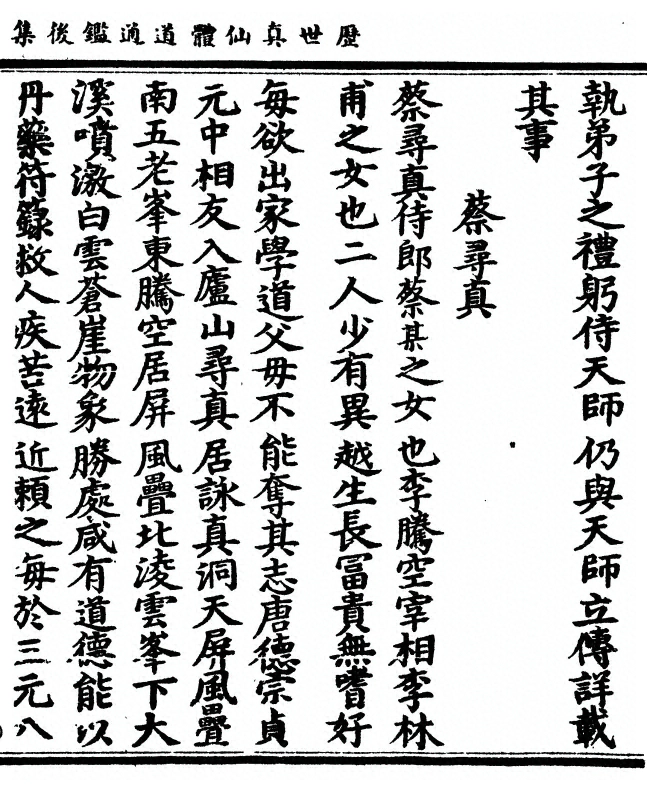 歷世真仙體道通鑑後集
執弟子之禮躬侍天師仍與天師立傳詳載
其事
蔡尋真
蔡尋真侍郎蔡某之女也李騰空宰相李林
甫之女也二人少有異越生長冨貴無嗜好
每欲出家學道父母不能奪其志唐德宗貞
元中相友入廬山尋真居詠真洞天屏風疊
南五老峯東騰空居屏風疊北淩雲峯下大
溪噴激白雲蒼崖物象勝處咸有道德能以
丹藥符籙救人疾苦遠近賴之每於三元八